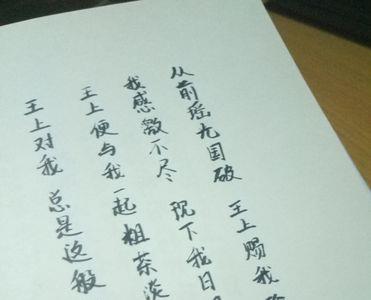 从前瑶九国破 王上赐我
我感激不尽 现下我日
王上便与我一起粗茶淡
王上对我 总是这般